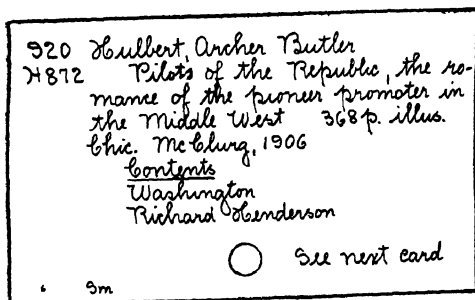 920 Hulbert, Archer Butler
H872 Pilots of the Republic, the ro-
mance of the pioneer promoter in
the Middle West 368p. illus.
Chic. McClurg, 1906
Contents
Washington
Richard Henderson
See next card
Sm